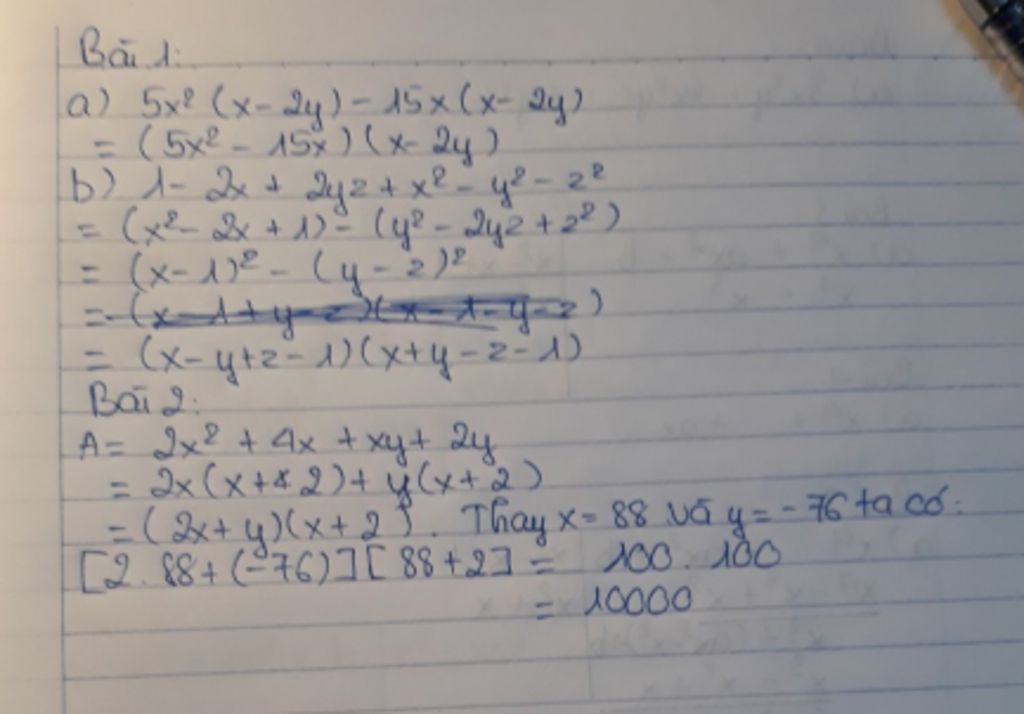 Bài 1:
a) 5x² (x - 2y) - 15x (x - 2y)
= (5x² - 15x) (x - 2y)
b) 1 - 2x + 2yz + x² - y² - z²
= (x² - 2x + 1) - (y² - 2yz + z²)
= (x - 1)² - (y - z)²
= (x - 1 + y - z)(x - 1 - y - z)
= (x - y + z - 1)(x + y - z - 1)
Bài 2:
A = 2x² + 4x + xy + 2y
= 2x (x + 2) + y (x + 2)
= (2x + y)(x + 2). Thay x = 88 và y = -76 ta có:
[2. 88 + (-76)] [88 + 2] = 100 . 100
= 10000